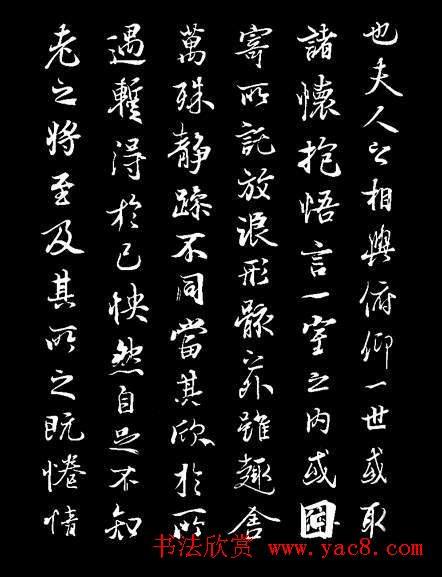 也夫人之相與俯仰一世或取
諸懷抱悟言一室之内或因
寄所託放浪形骸之外雖趣舍
萬殊静躁不同當其欣於所
遇蹔得於己怏然自足不知
老之将至及其所之既惓情
书法欣赏 www.yac8.com